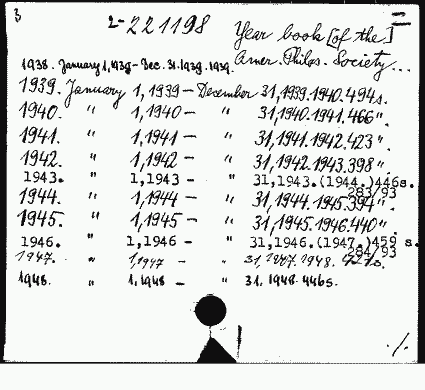 3
2-221198
Year book [of the]
Amer. Philos. Society...
1938. January 1, 1939 - Dec. 31. 1939. 1939.
1939. January 1, 1939 - December 31, 1939. 1940. 494 s.
1940. " 1, 1940 - " 31, 1940. 1941. 466 ".
1941. " 1, 1941 - " 31, 1941. 1942. 423 ".
1942. " 1, 1942 - " 31, 1942. 1943. 398 ".
1943. " 1, 1943 - " 31, 1943. (1944.) 446 s.
283/93
1944. " 1, 1944 - " 31, 1944. 1945. 394 ".
1945. " 1, 1945 - " 31, 1945. 1946. 440 ".
1946. " 1, 1946 - " 31, 1946. (1947.) 459 s.
284/93
1947. " 1, 1947 - " 31, 1947. 1948.
1948. " 1, 1948 - " 31. 1948. 446 s.
./.